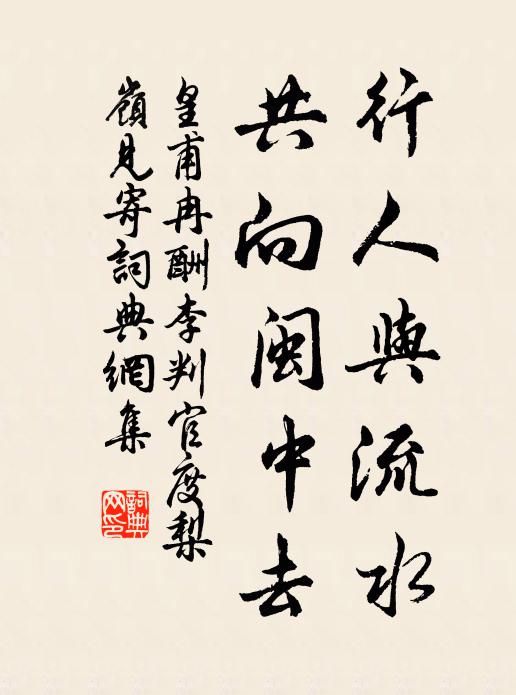 行人與流水
共向閩中去
皇甫冉酬李判官度梨
嶺見寄詞典網集
詞典网印